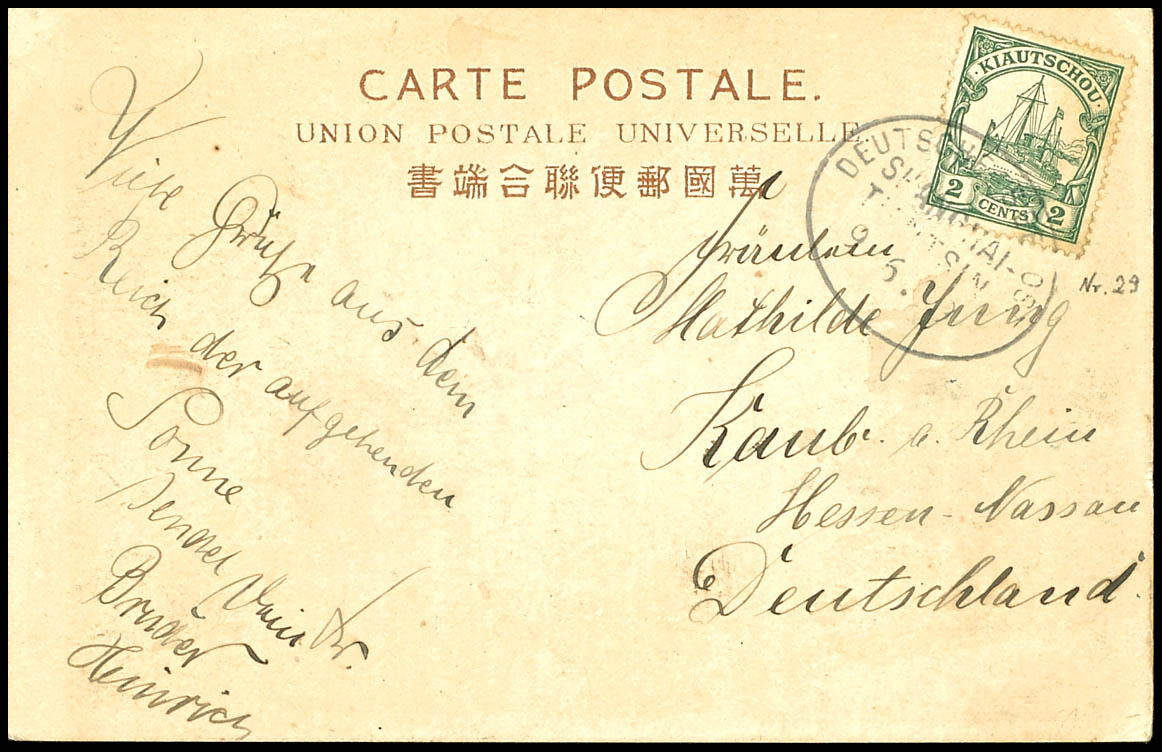 CARTE POSTALE.
UNION POSTALE UNIVERSELLE
書端合聯便郵國萬
KIAUTSCHOU
2 CENTS 2
DEUTSCHE
SHANGHAI-
TIENTSIN
9 5.
Nr. 29
Fräulein
Mathilde Jung
Kaub a. Rhein
Hessen-Nassau
Deutschland.
Viele Grüße aus dem
Reich der aufgehenden
Sonne
sendet Dein tr.
Bruder
Heinrich